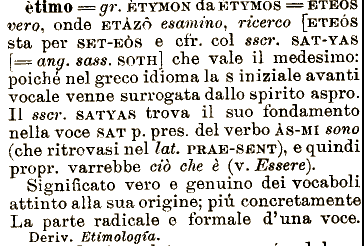 ètimo = gr. ÈTYMON da ETYMOS = ETEÒS
vero, onde ETÀZÔ esamino, ricerco [ETEÓS
sta per SET-EÒS e cfr. col sscr. SAT-YAS
[= ang. sass. SOTH] che vale il medesimo:
poiché nel greco idioma la s iniziale avanti
vocale venne surrogata dallo spirito aspro.
Il sscr. SATYAS trova il suo fondamento
nella voce SAT p. pres. del verbo ÀS-MI sono
(che ritrovasi nel lat. PRAE-SENT), e quindi
propr. varrebbe ciò che è (v. Essere).
Significato vero e genuino dei vocaboli
attinto alla sua origine; piú concretamente
La parte radicale e formale d'una voce.
Deriv. Etimología.